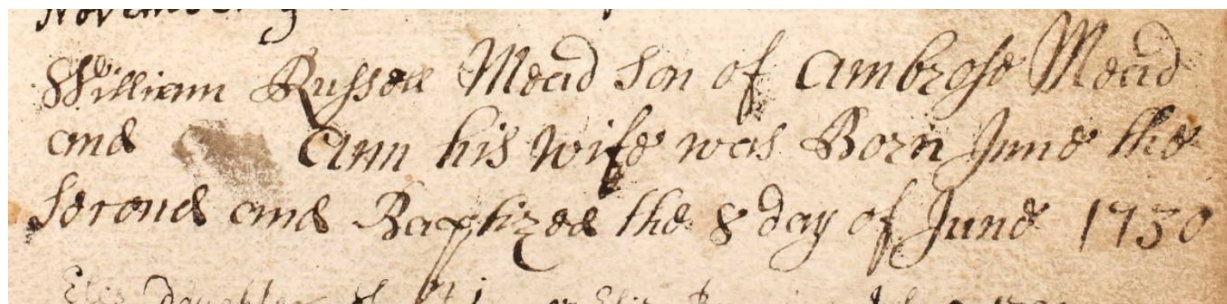 November
William Russell Mead Son of Ambrose Mead
and Ann his Wife was Born June the
Second and Baptized the 8 day of June 1730
daughter of